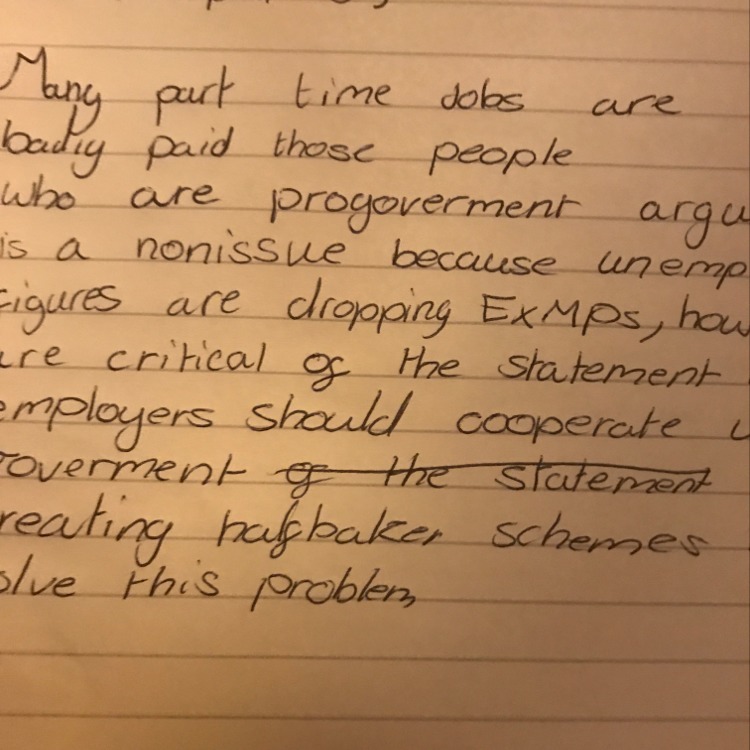 Many part time Jobs are
badly paid those people
who are progoverment argu
is a nonissue because unemp
figures are dropping ExMPs, how
are critical of the statement
employers should cooperate
goverment of the statement
creating halfbaker schemes
olve this problem